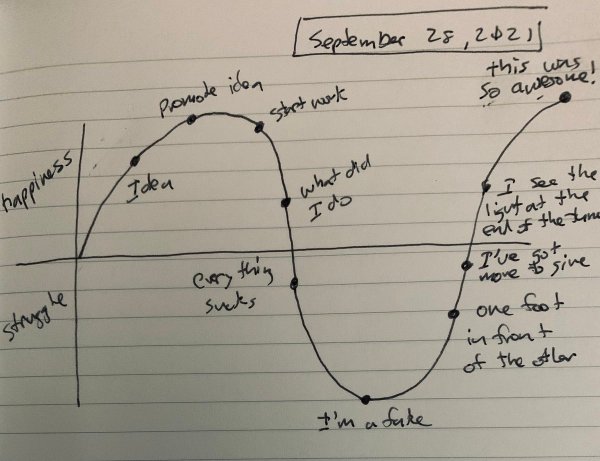 September 28, 2021
this was
so awesome!
Promote idea
start work
Idea
what did
I do
happiness
I see the
light at the
end of the tunnel
I've got
more to give
everything
sucks
struggle
one foot
in front
of the other
I'm a fake